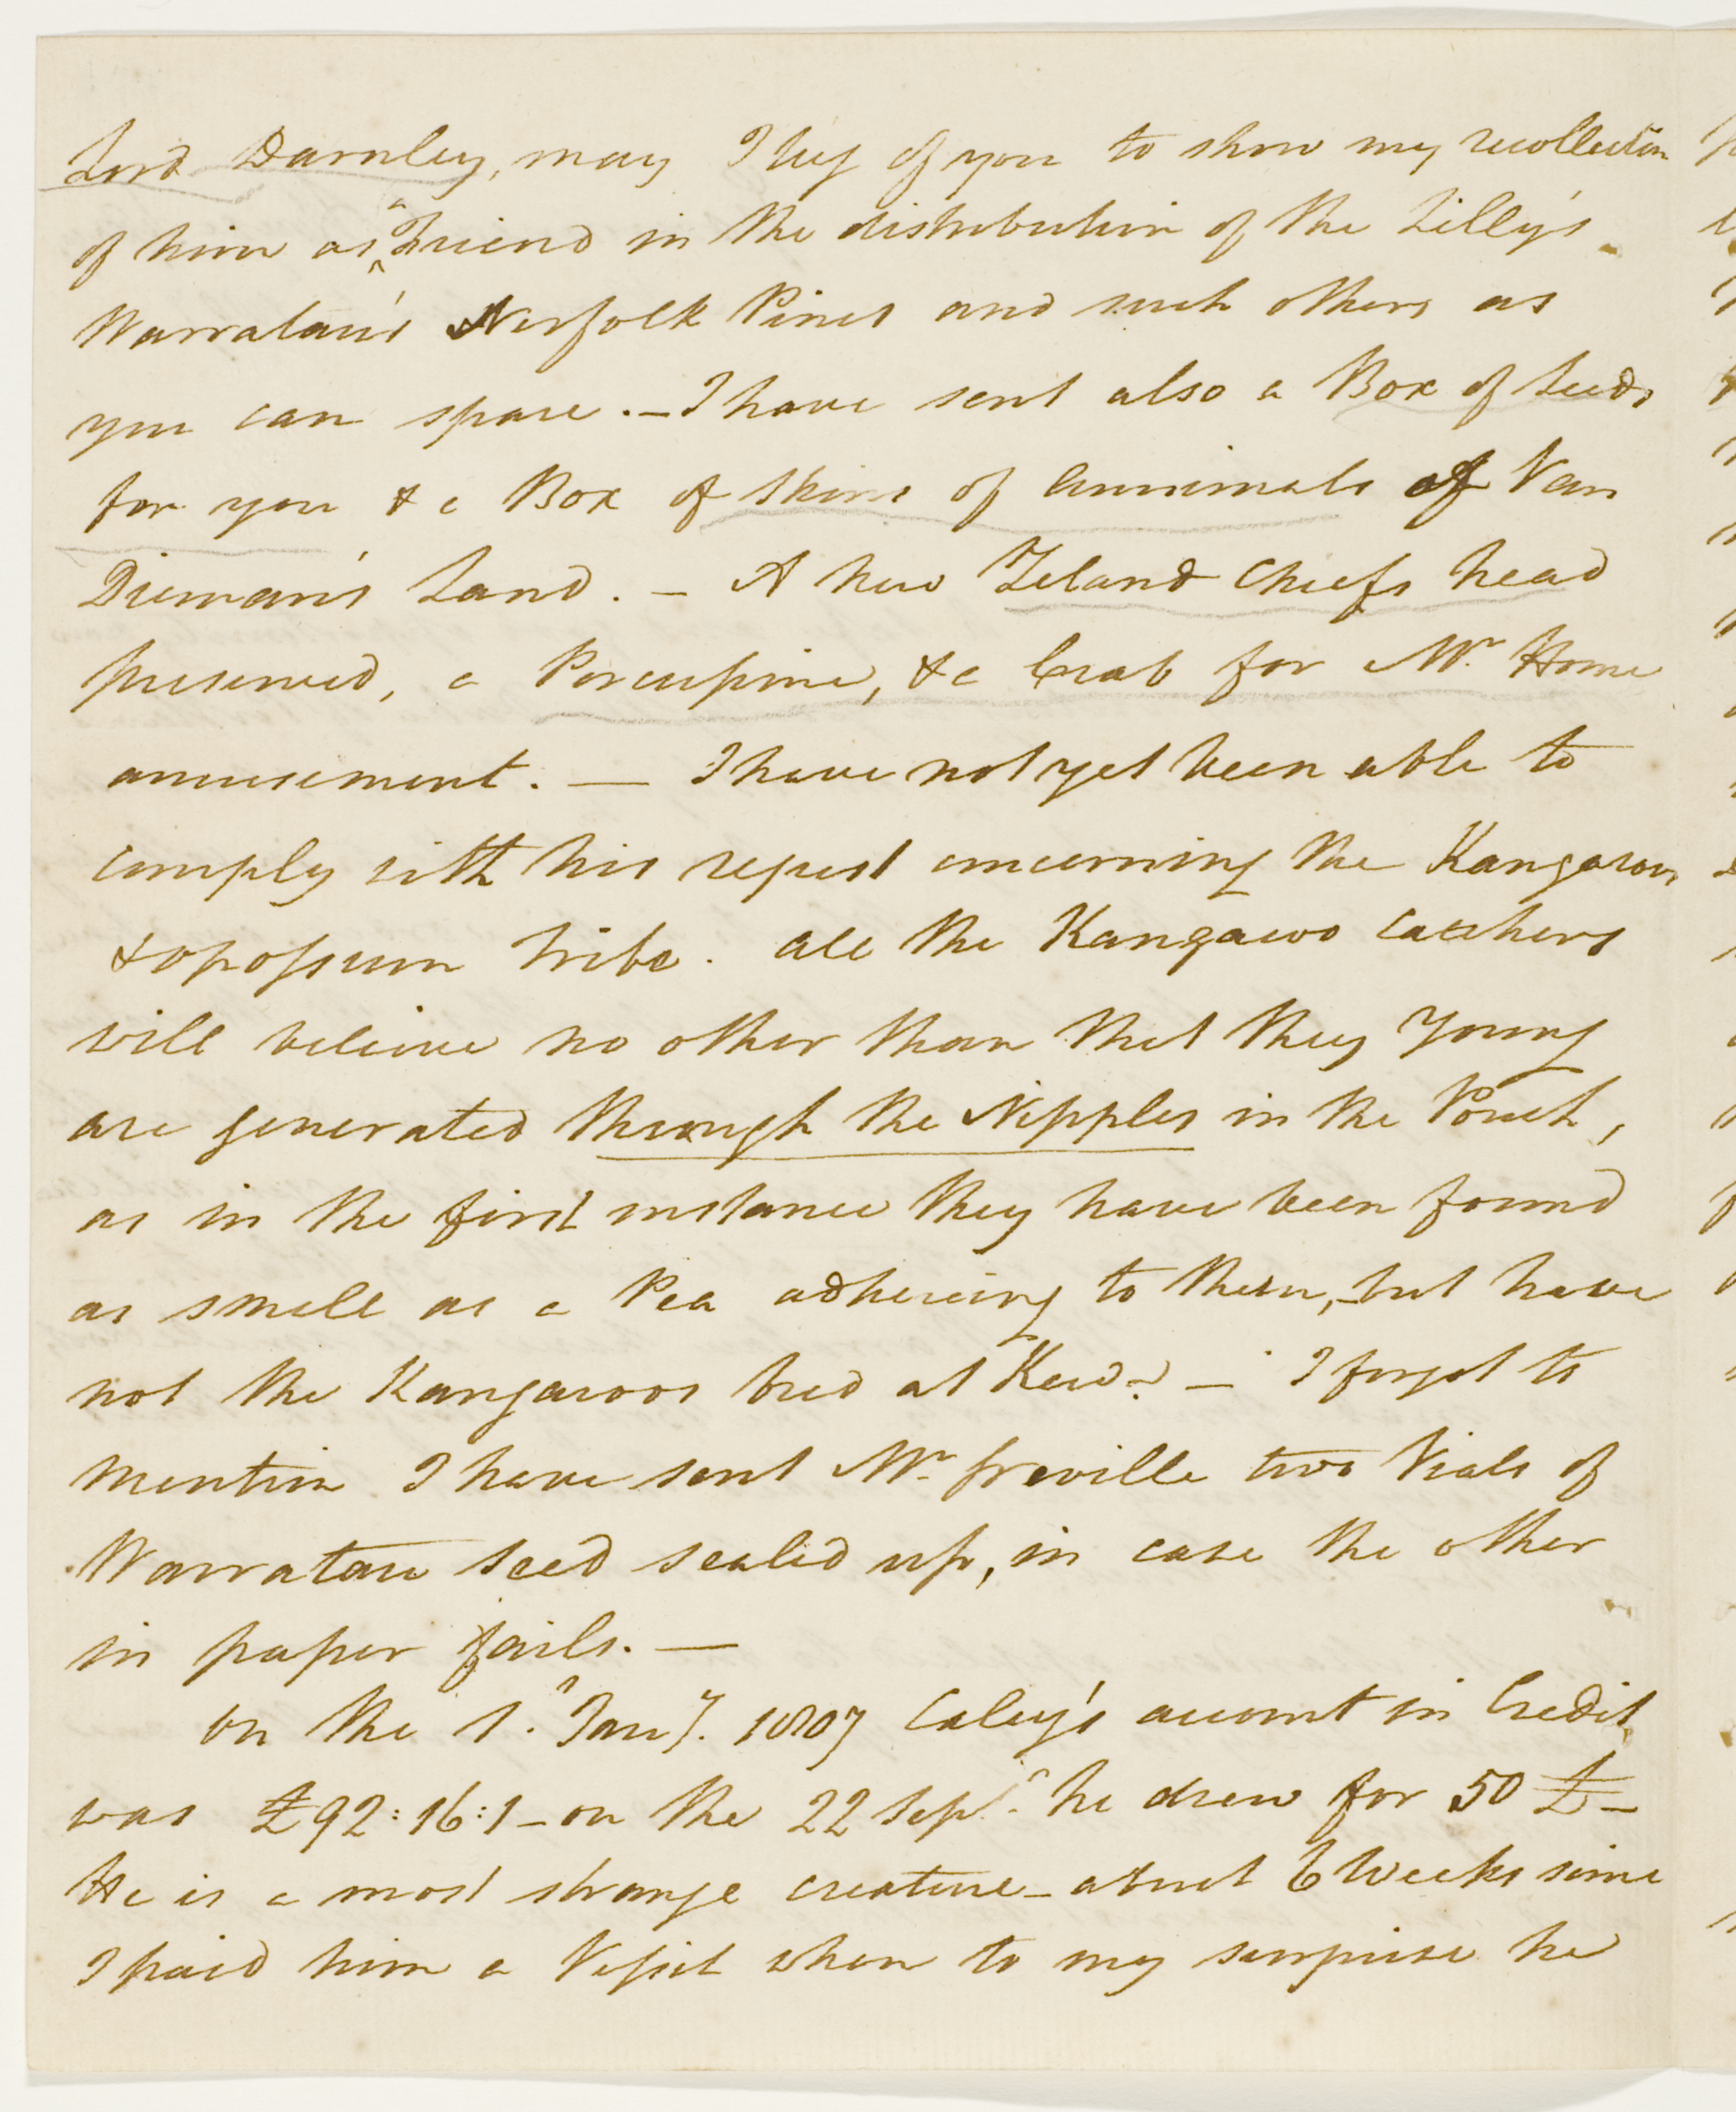 Lord Darnley, may I beg of you to show my recollection
of him as a Friend in the distribution of the Lilly's
Warratau's Norfolk Pines and such others as
you can spare. - I have sent also a Box of seeds
for you & a Box of Skins of Annimals of Van
Dieman's Land. - A New Zeland Chiefs head
preserved, a Porcupine, & a Crab for Mr. Home
amusement. — I have not yet been able to
comply with his request concerning the Kangaroo
& opossum tribe. All the Kangaroo catchers
will believe no other than that they Young
are generated through the Nipples in the Pouch,
as in the first instance they have been found
as small as a Pea adhereing to them, - but have
not the Kangaroos bred at Kew? - I forgot to
mention I have sent Mr. Greville two Vials of
Warratau seed sealed up, in case the other
in paper fails. —
On the 1. Jany. 1807 Caley's account in Credit
was £92:16:1 - on the 22 Sepr. he drew for 50 £ -
He is a most strange creature - about 6 Weeks since
I paid him a Vissit when to my surprise he